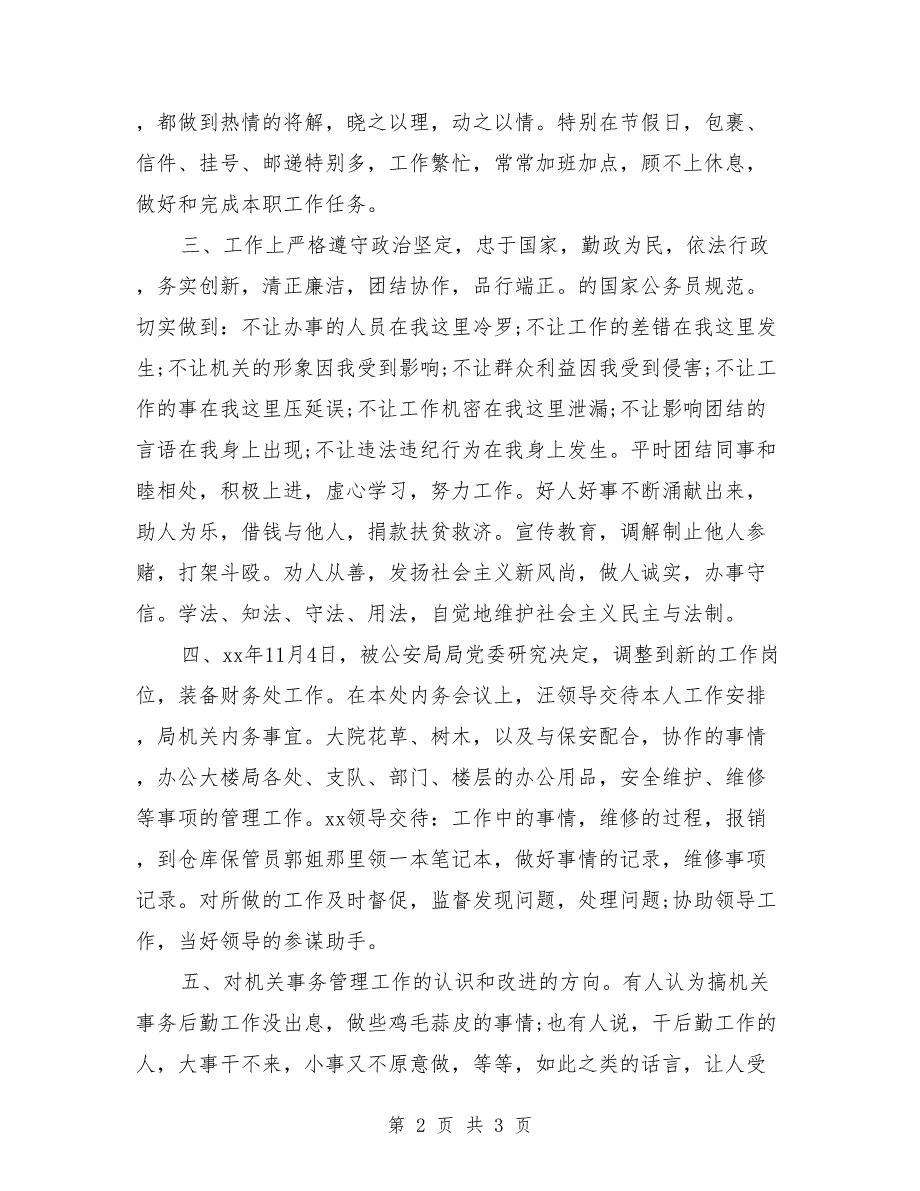 ，都做到热情的将解，晓之以理，动之以情。特别在节假日，包裹、
信件、挂号、邮递特别多，工作繁忙，常常加班加点，顾不上休息，
做好和完成本职工作任务。
三、工作上严格遵守政治坚定，忠于国家，勤政为民，依法行政
，务实创新，清正廉洁，团结协作，品行端正。的国家公务员规范。
切实做到：不让办事的人员在我这里冷罗;不让工作的差错在我这里发
生;不让机关的形象因我受到影响;不让群众利益因我受到侵害;不让工
作的事在我这里压延误;不让工作机密在我这里泄漏;不让影响团结的
言语在我身上出现;不让违法违纪行为在我身上发生。平时团结同事和
睦相处，积极上进，虚心学习，努力工作。好人好事不断涌献出来，
助人为乐，借钱与他人，捐款扶贫救济。宣传教育，调解制止他人参
赌，打架斗殴。劝人从善，发扬社会主义新风尚，做人诚实，办事守
信。学法、知法、守法、用法，自觉地维护社会主义民主与法制。
四、xx年11月4日，被公安局局党委研究决定，调整到新的工作岗
位，装备财务处工作。在本处内务会议上，汪领导交待本人工作安排
，局机关内务事宜。大院花草、树木，以及与保安配合，协作的事情
，办公大楼局各处、支队、部门、楼层的办公用品，安全维护、维修
等事项的管理工作。xx领导交待：工作中的事情，维修的过程，报销
，到仓库保管员郭姐那里领一本笔记本，做好事情的记录，维修事项
记录。对所做的工作及时督促，监督发现问题，处理问题;协助领导工
作，当好领导的参谋助手。
五、对机关事务管理工作的认识和改进的方向。有人认为搞机关
事务后勤工作没出息，做些鸡毛蒜皮的事情;也有人说，干后勤工作的
人，大事干不来，小事又不原意做，等等，如此之类的话言，让人受
第 2 页 共 3 页